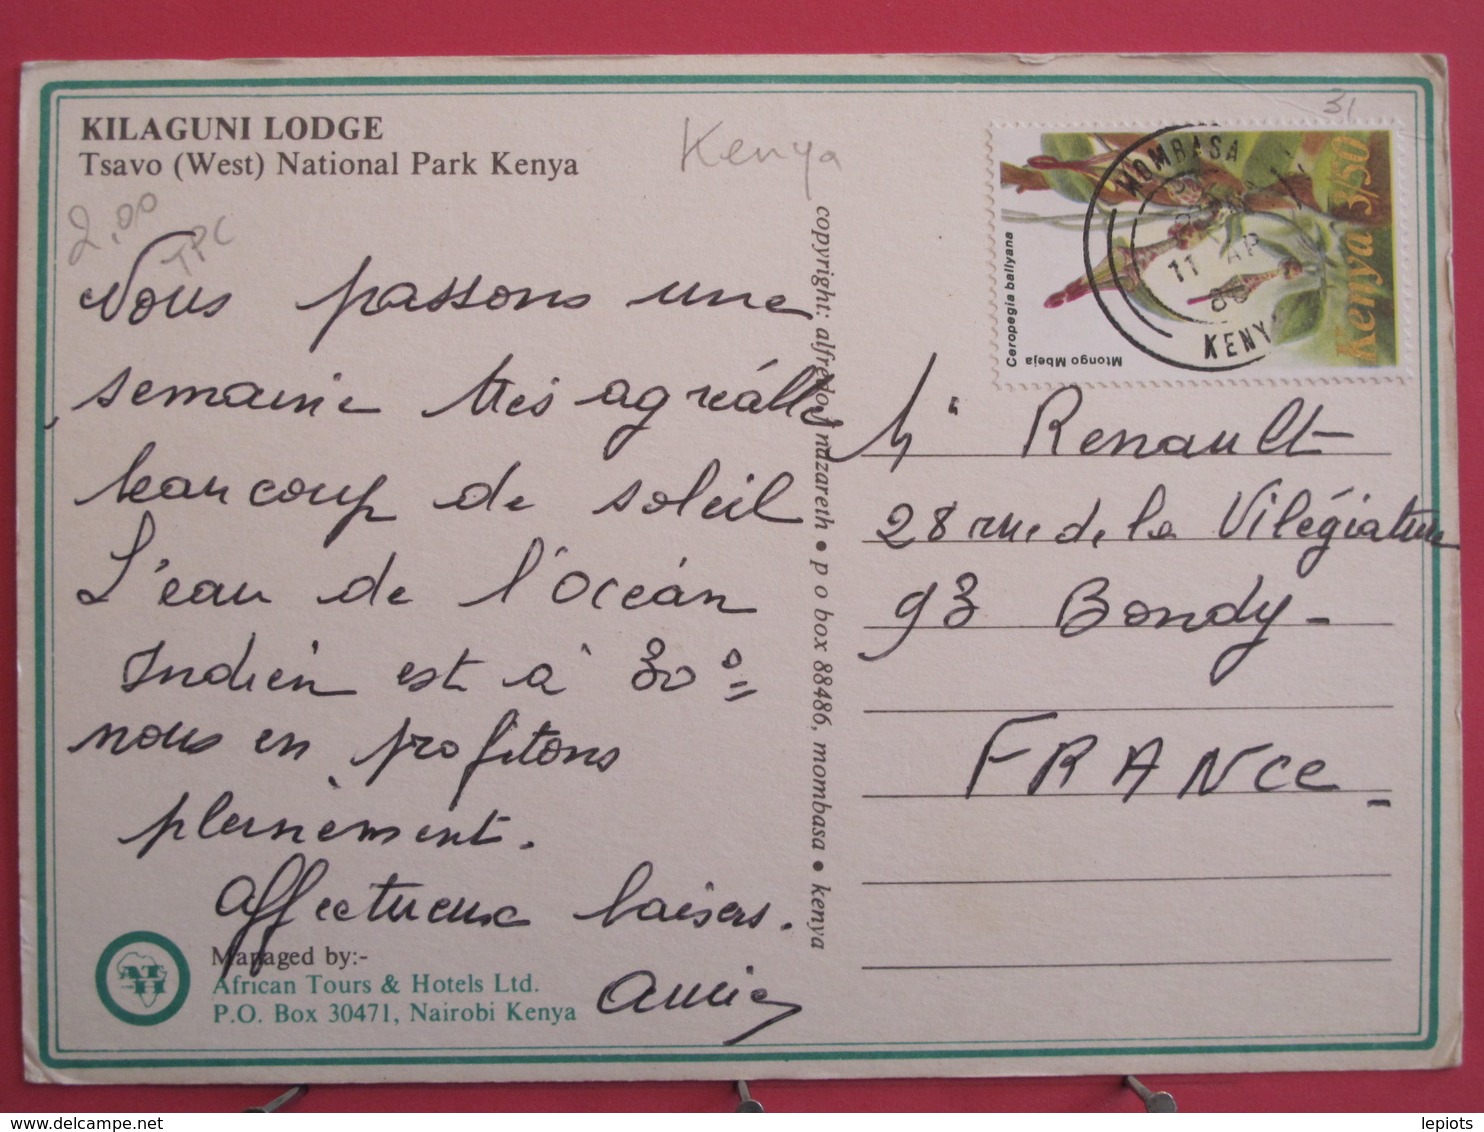 KILAGUNI LODGE
Tsavo (West) National Park Kenya
Kenya
31
2,00
TPC
Nous passons une
semaine très agréable
beaucoup de soleil
L'eau de l'Océan
Indien est à 30°
nous en profitons
pleinement.
Affectueux baisers.
Managed by:-
African Tours & Hotels Ltd.
P.O. Box 30471, Nairobi Kenya
copyright: alfredo j nazareth • p o box 88486, mombasa • kenya
Ceropegia ballyana
Mtongo Mbeja
Kenya 3/50
MOMBASA
11 AP
KENY
Renault
28 rue de la Vilégiature
93 Bondy -
FRANCE -
lepiots
delcampe.net